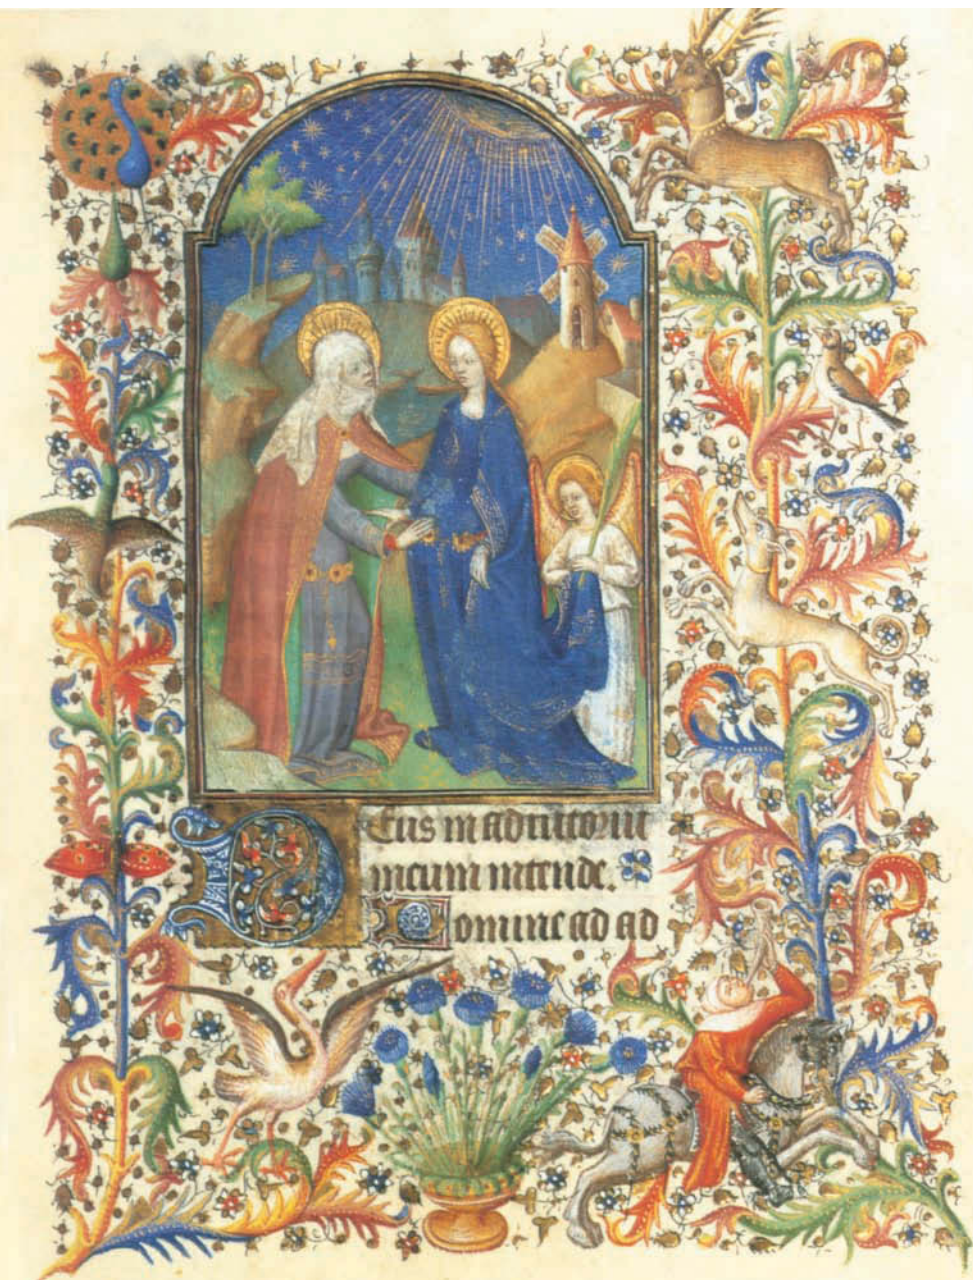 Deus in adiutoriu
meum intende.
Domine ad ad